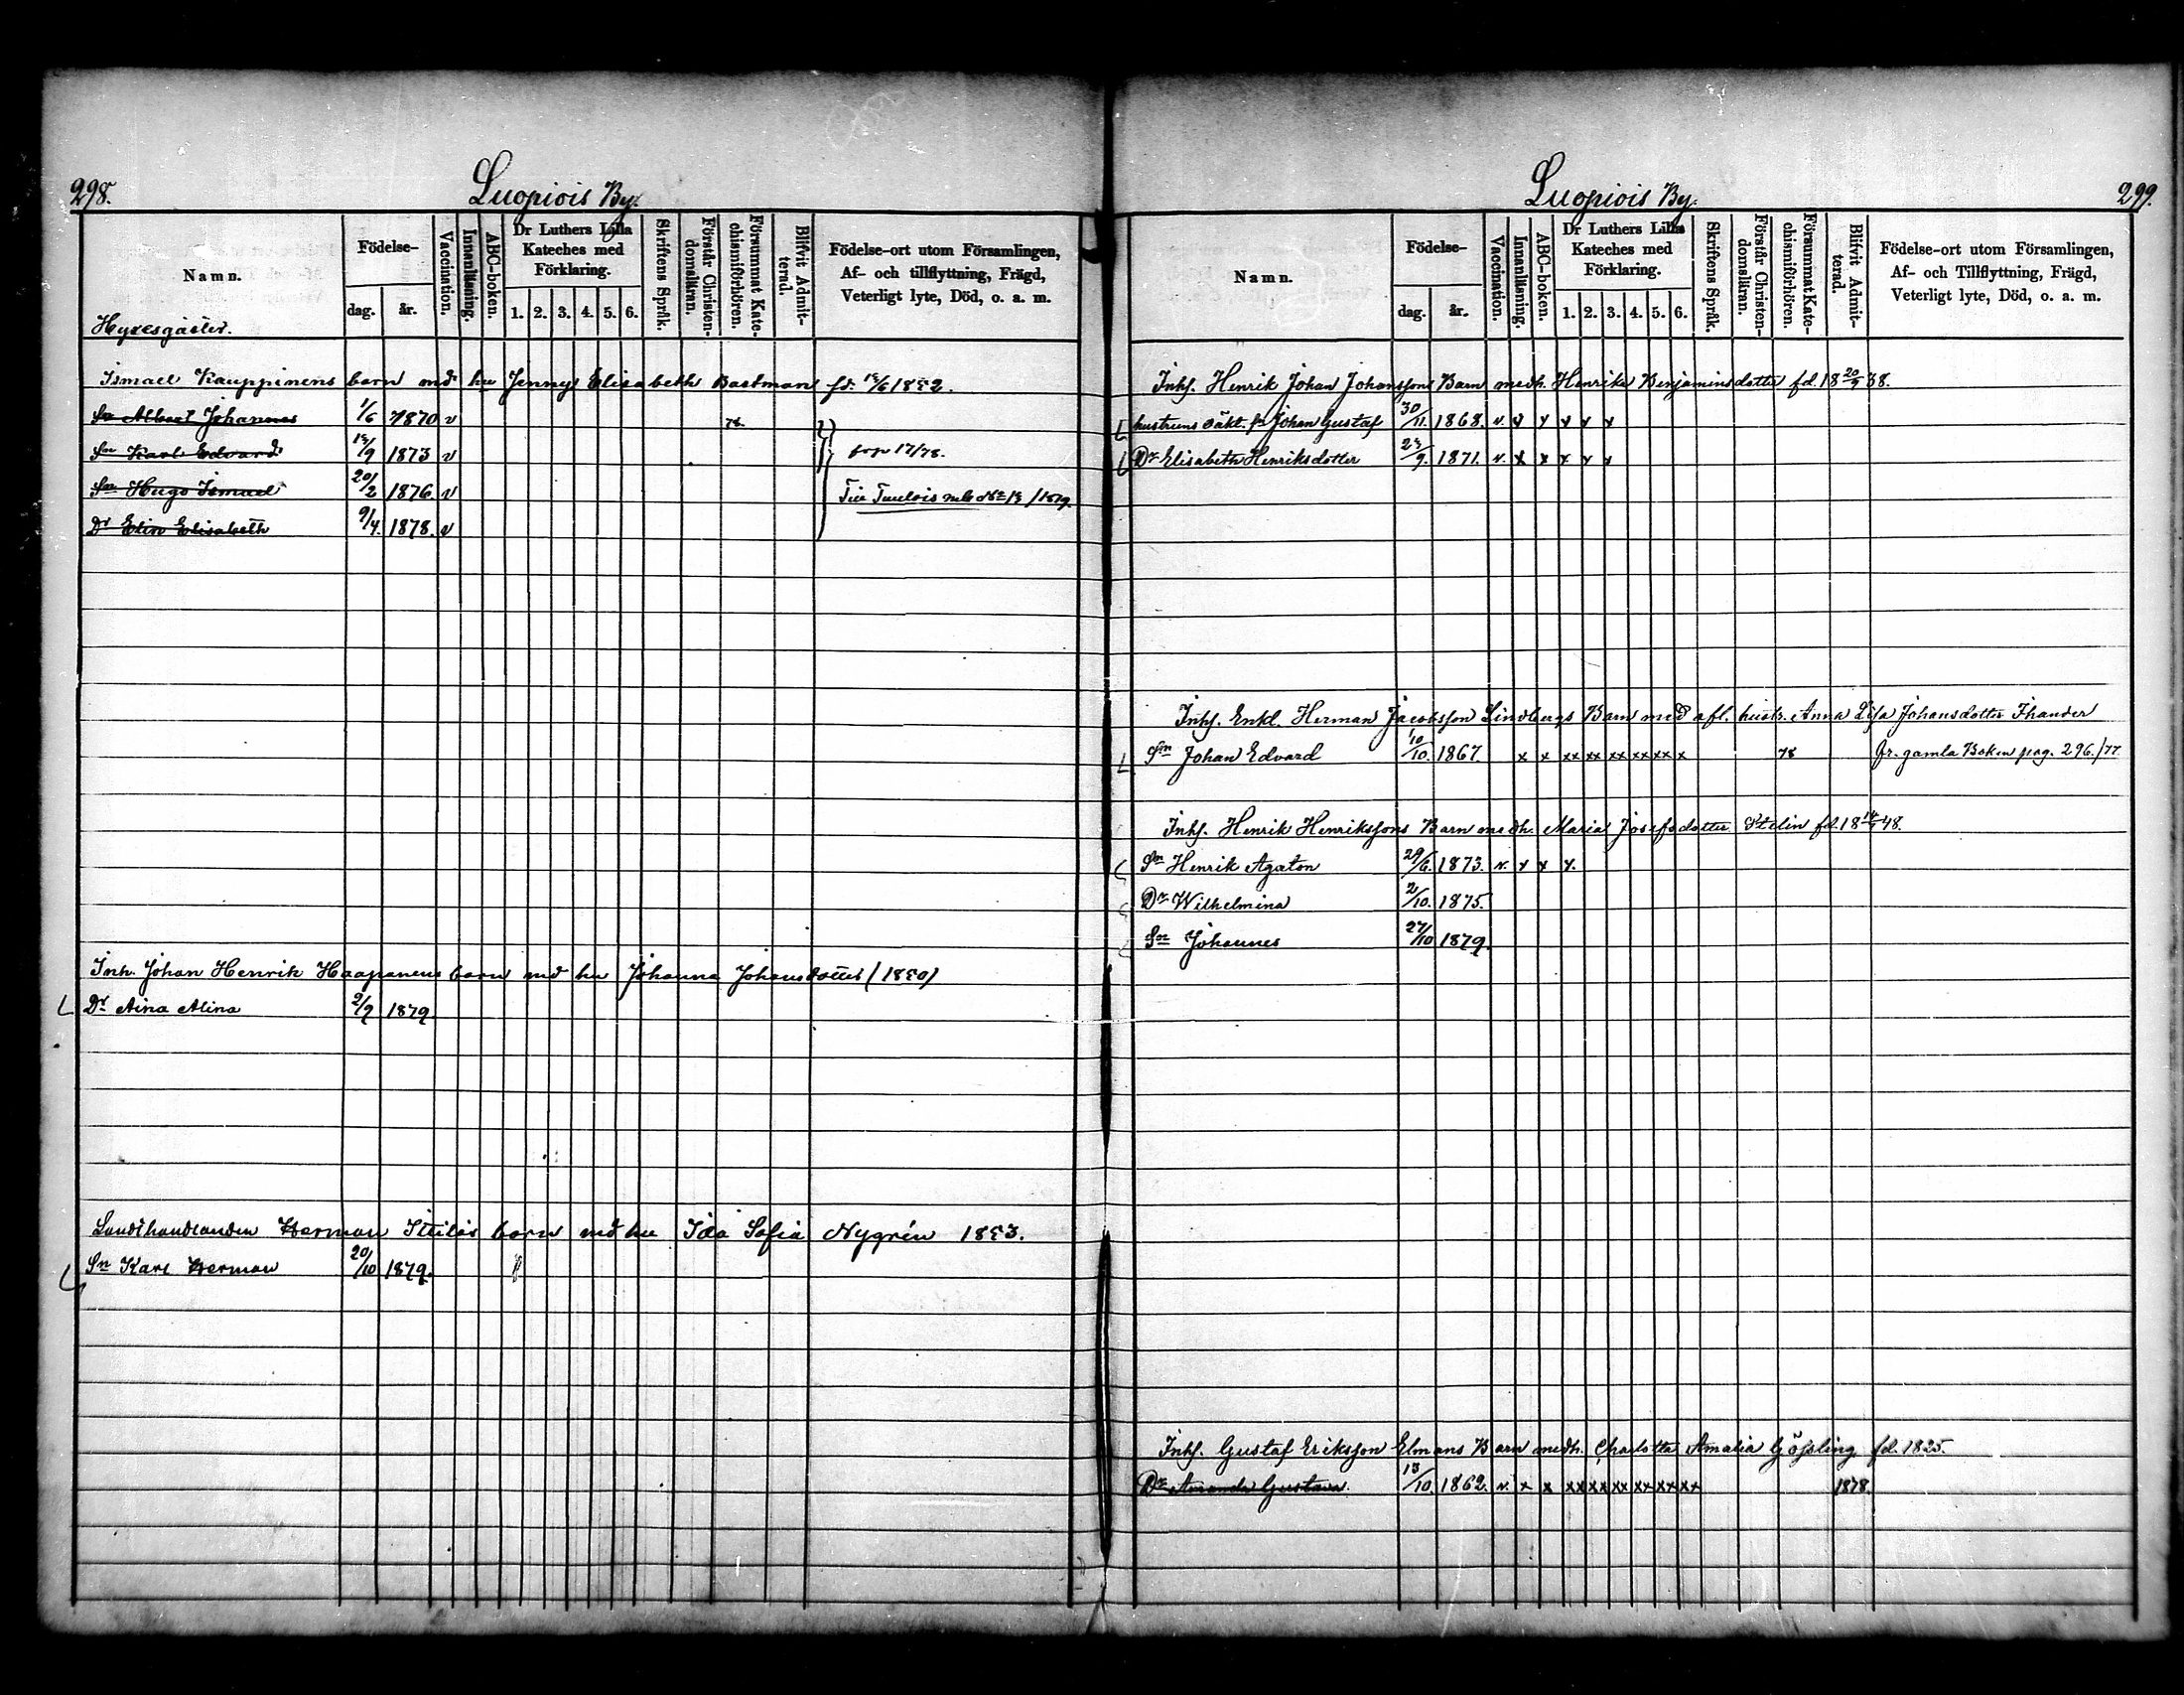 298.
Luopiois By.
Namn.
Födelse-
dag.
år.
Vaccination.
Innanläsning.
ABC-boken.
Dr Luthers Lilla Kateches med Förklaring.
1. 2. 3. 4. 5. 6.
Skriftens Språk.
Förstår Christendomsläran.
Försummat Katechismiförhören.
Blifvit Admitterad.
Födelse-ort utom Församlingen, Af- och tillflyttning, Frägd, Veterligt lyte, Död, o. a. m.
Hyresgäster.
Ismael Kauppinens barn md hu Jenny Elisabeth Bastman fd. 1852.
Sn Albert Johannes 1/6 1870 v 78.
Sn Karl Edvard 1873 v 17/78.
Sn Hugo Ismael 20/2 1876 v Till Tuulois 1879.
Dr Elin Elisabeth 9/4. 1878. v
Inh. Johan Henrik Haapanens barn md hu Johanna Johansdotter (1850)
Dr Aina Alina 2/9 1879
Landthandlanden Herman Ittiläs barn md hu Ida Sofia Nygrén 1853.
Sn Karl Herman 20/10 1879.
299.
Luopiois By.
Namn.
Födelse-
dag.
år.
Vaccination.
Innanläsning.
ABC-boken.
Dr Luthers Lilla Kateches med Förklaring.
1. 2. 3. 4. 5. 6.
Skriftens Språk.
Förstår Christendomsläran.
Försummat Katechismiförhören.
Blifvit Admitterad.
Födelse-ort utom Församlingen, Af- och Tillflyttning, Frägd, Veterligt lyte, Död, o. a. m.
Inhs. Henrik Johan Johanssons Barn medh. Henrika Benjaminsdotter fd. 18 20/9 38.
hustruns oäkt. sn Johan Gustaf 30/11. 1868. v. x x x x x
Dr Elisabeth Henriksdotter 1871. v. x x x x x
Inhs. Enkl. Herman Jacobsson Lindbergs Barn med afl. hustr. Anna Lisa Johansdotter Ihander
Sn Johan Edvard 10/10. 1867. x x xx xx xx xx xx x 78 fr. gamla Boken pag. 296./77.
Inhs. Henrik Henrikssons Barn medh. Maria Josefsdotter Stelin fd. 18 48.
Sn Henrik Agaton 29/6. 1873. v. x x x.
Dr Wilhelmina 2/10. 1875.
Sn Johannes 27/10 1879.
Inhs. Gustaf Eriksson Elmans Barn medh. Charlotta Amalia Gössling fd. 1825.
Dr Amanda Gustava. 13/10 1862. v. x x xx xx xx xx xx xx 1878